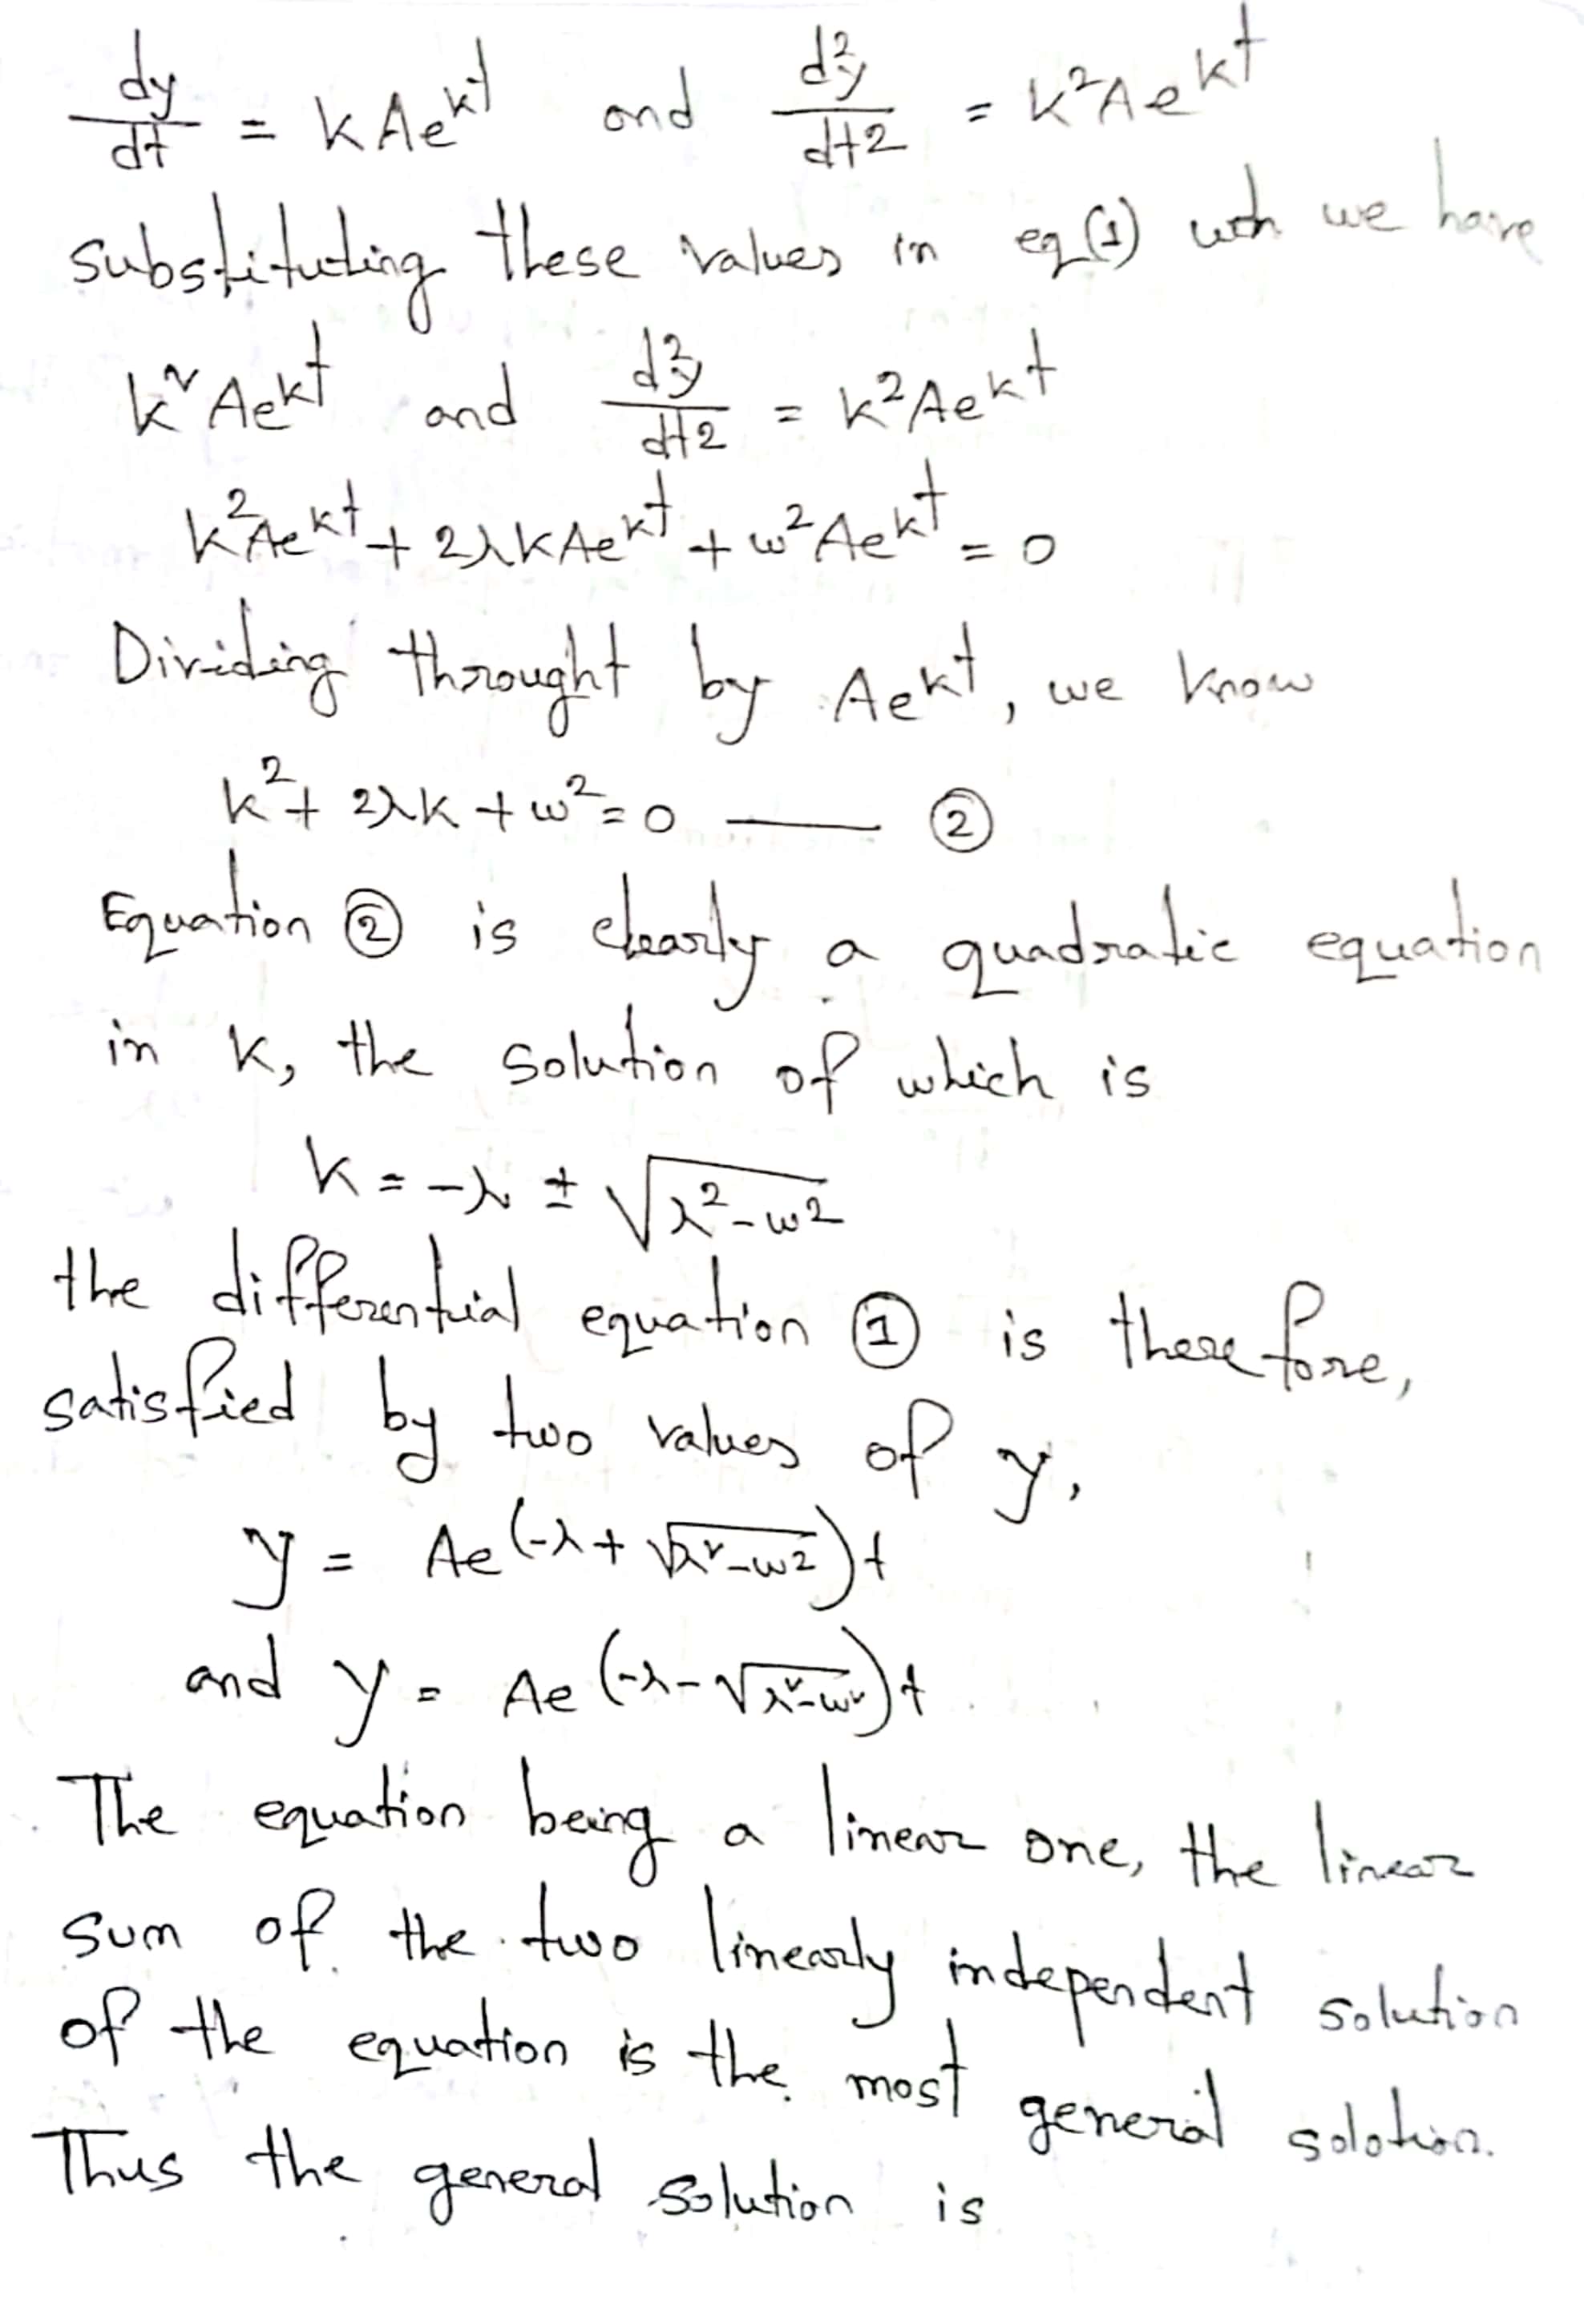 dy/dt = kAe^kt and d²y/dt2 = k²Ae^kt
substituting these values in eq(1) we have
k²Ae^kt and d²y/dt2 = k²Ae^kt
k²Ae^kt + 2λkAe^kt + ω²Ae^kt = 0
Dividing throught by Ae^kt, we know
k² + 2λk + ω² = 0 —— ②
Equation ② is clearly a quadratic equation
in k, the solution of which is
k = -λ ± √(λ²-ω2)
the differential equation ① is therefore,
satisfied by two values of y,
y = Ae^(-λ + √(λ²-ω2))t
and y = Ae^(-λ - √(λ²-ω²))t
The equation being a linear one, the linear
sum of the two linearly independent solution
of the equation is the most general solotion.
Thus the general solution is